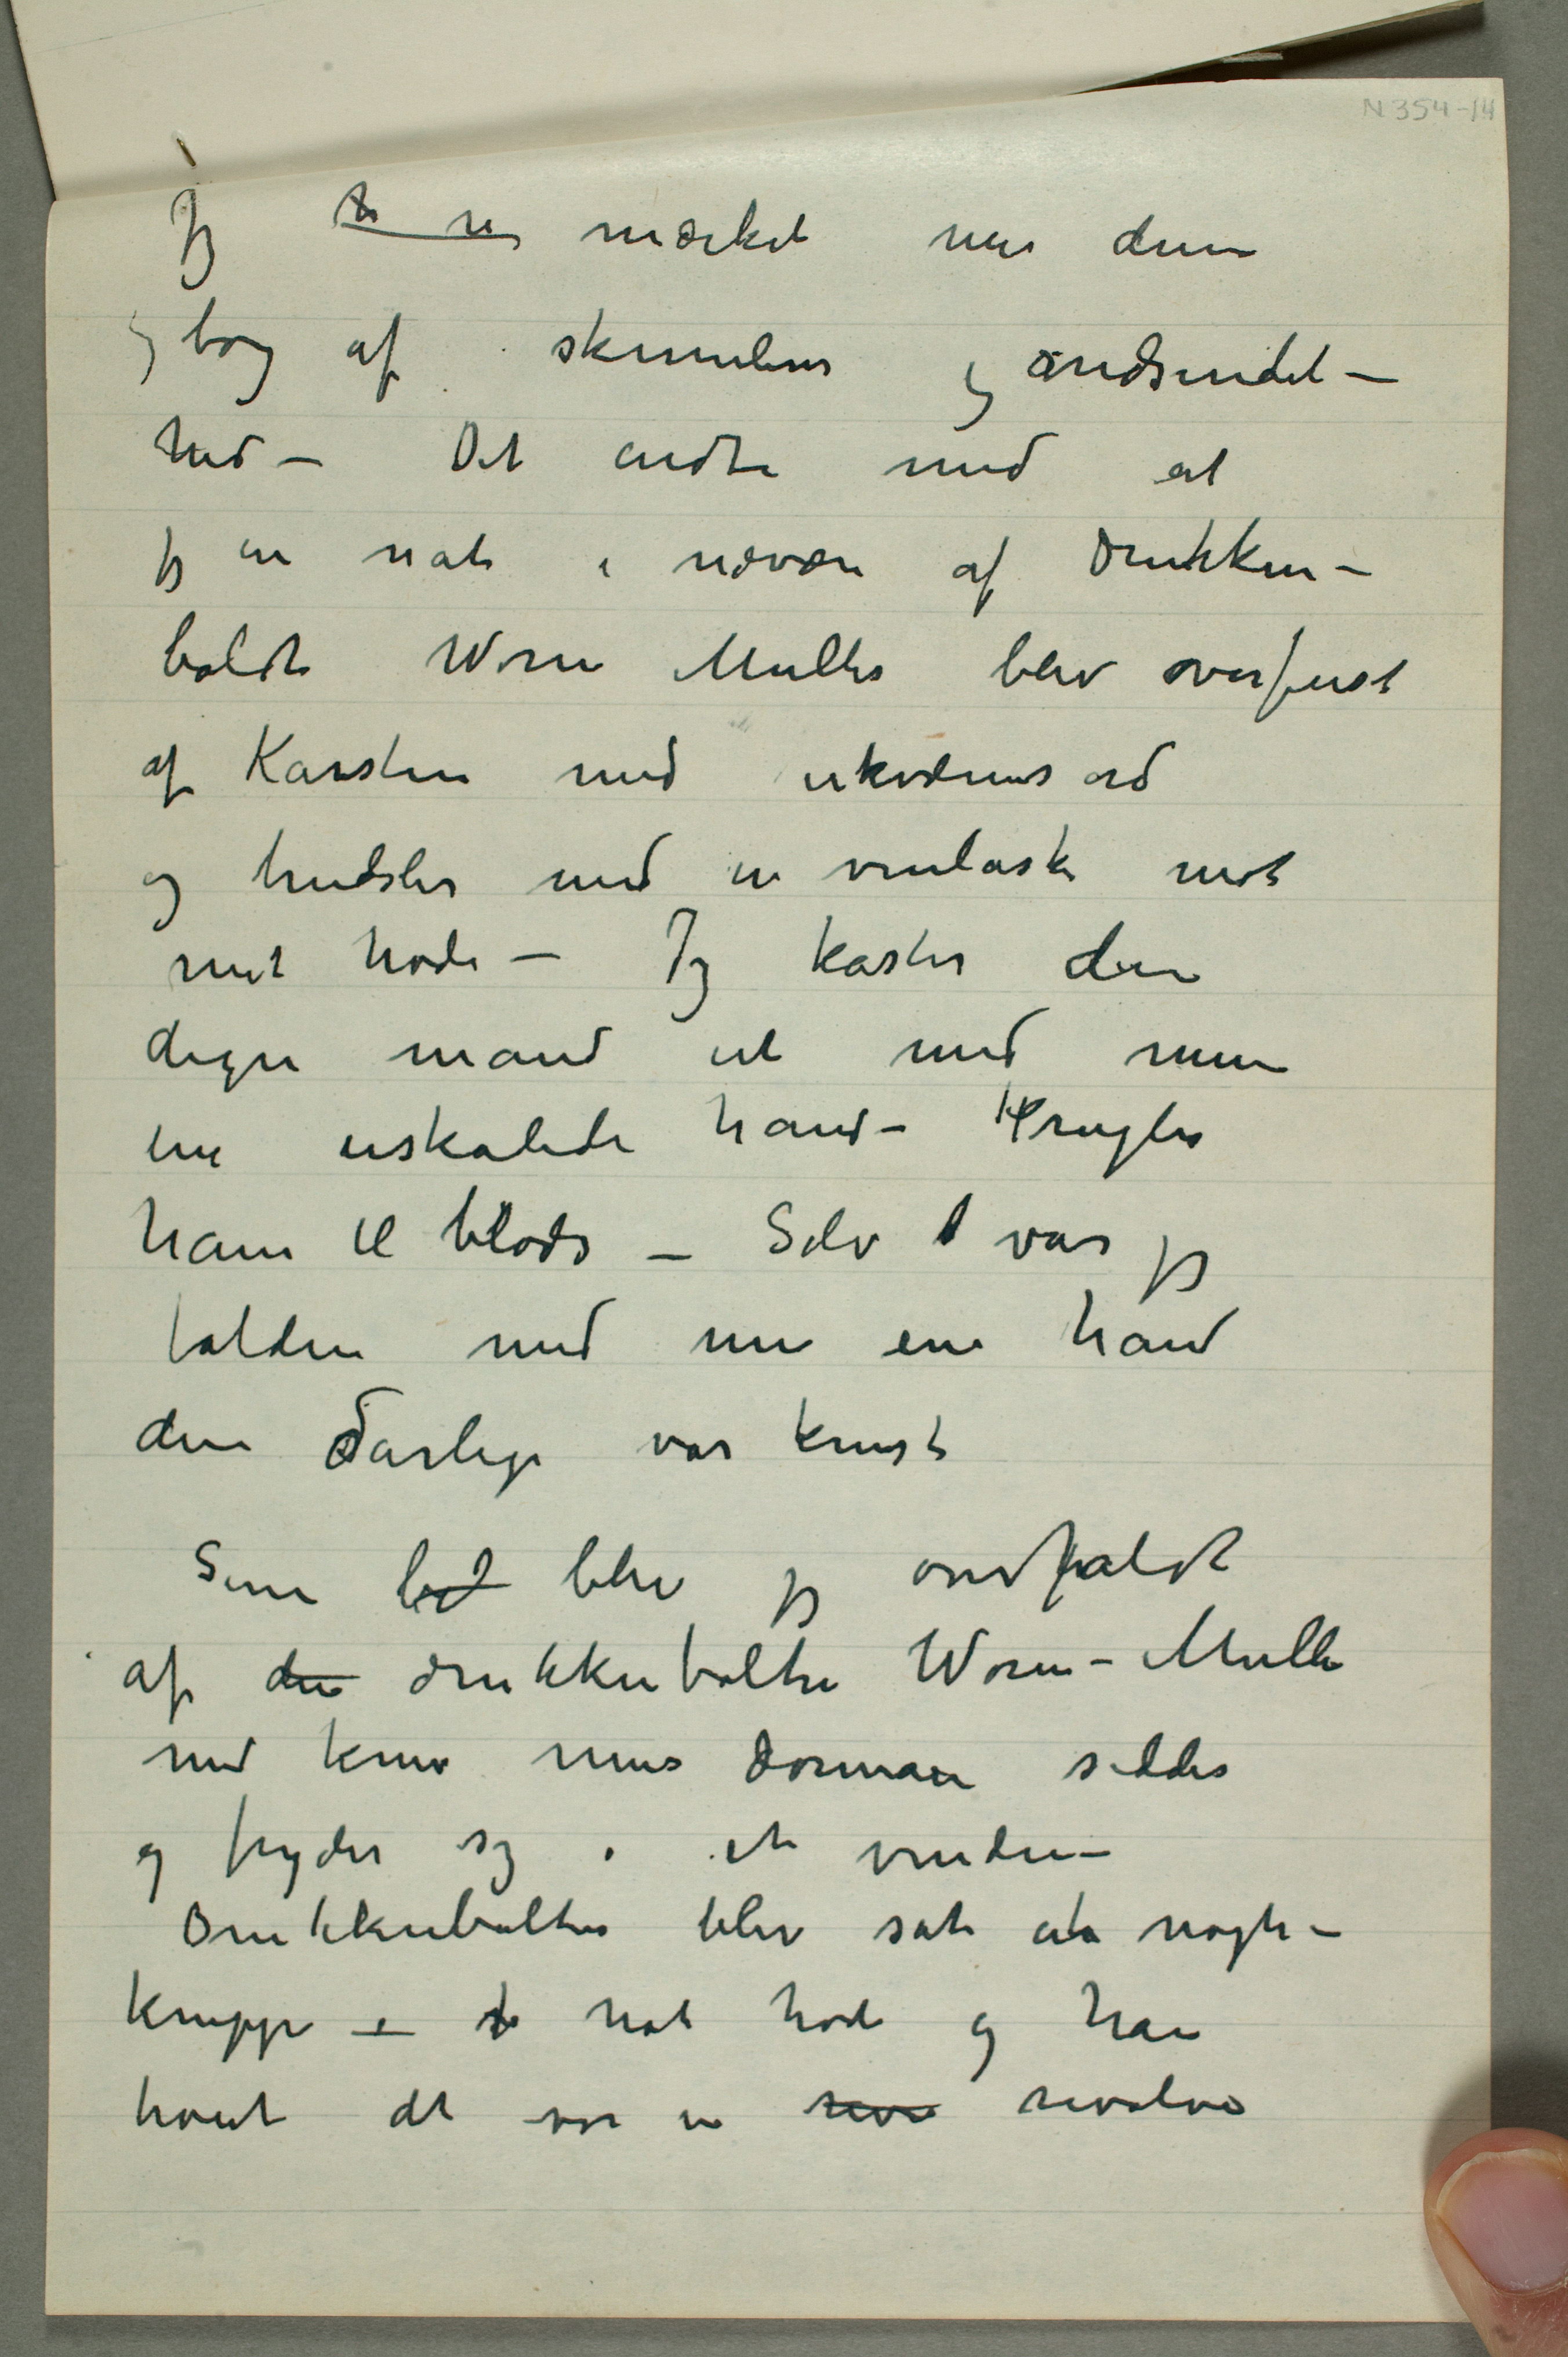 N 354-14
Jeg mærket mer denne
og bag af skinnelser og ondsindet–
hed – Det endte med at
jeg en nat i nærvær af Drukken–
boldt Worm Muller blev overfust
af Karsten med ukvemsord
og trudsler med en vinflaske mot
mit hode – Jeg kaster den
digre mand ut med min
ene uskadede hand – Prygler
ham til blods – Selv var jeg
falden med min ene hand
den dårlige var knust
Senere blev jeg overfaldt
af den drukkenbolten Worm-Muller
med kniv mens dorman sidder
og fryder sig i et vindu–
Drukkenbolten blev sat et nøgle–
knippe i hode og han
troet det var en rev revolver